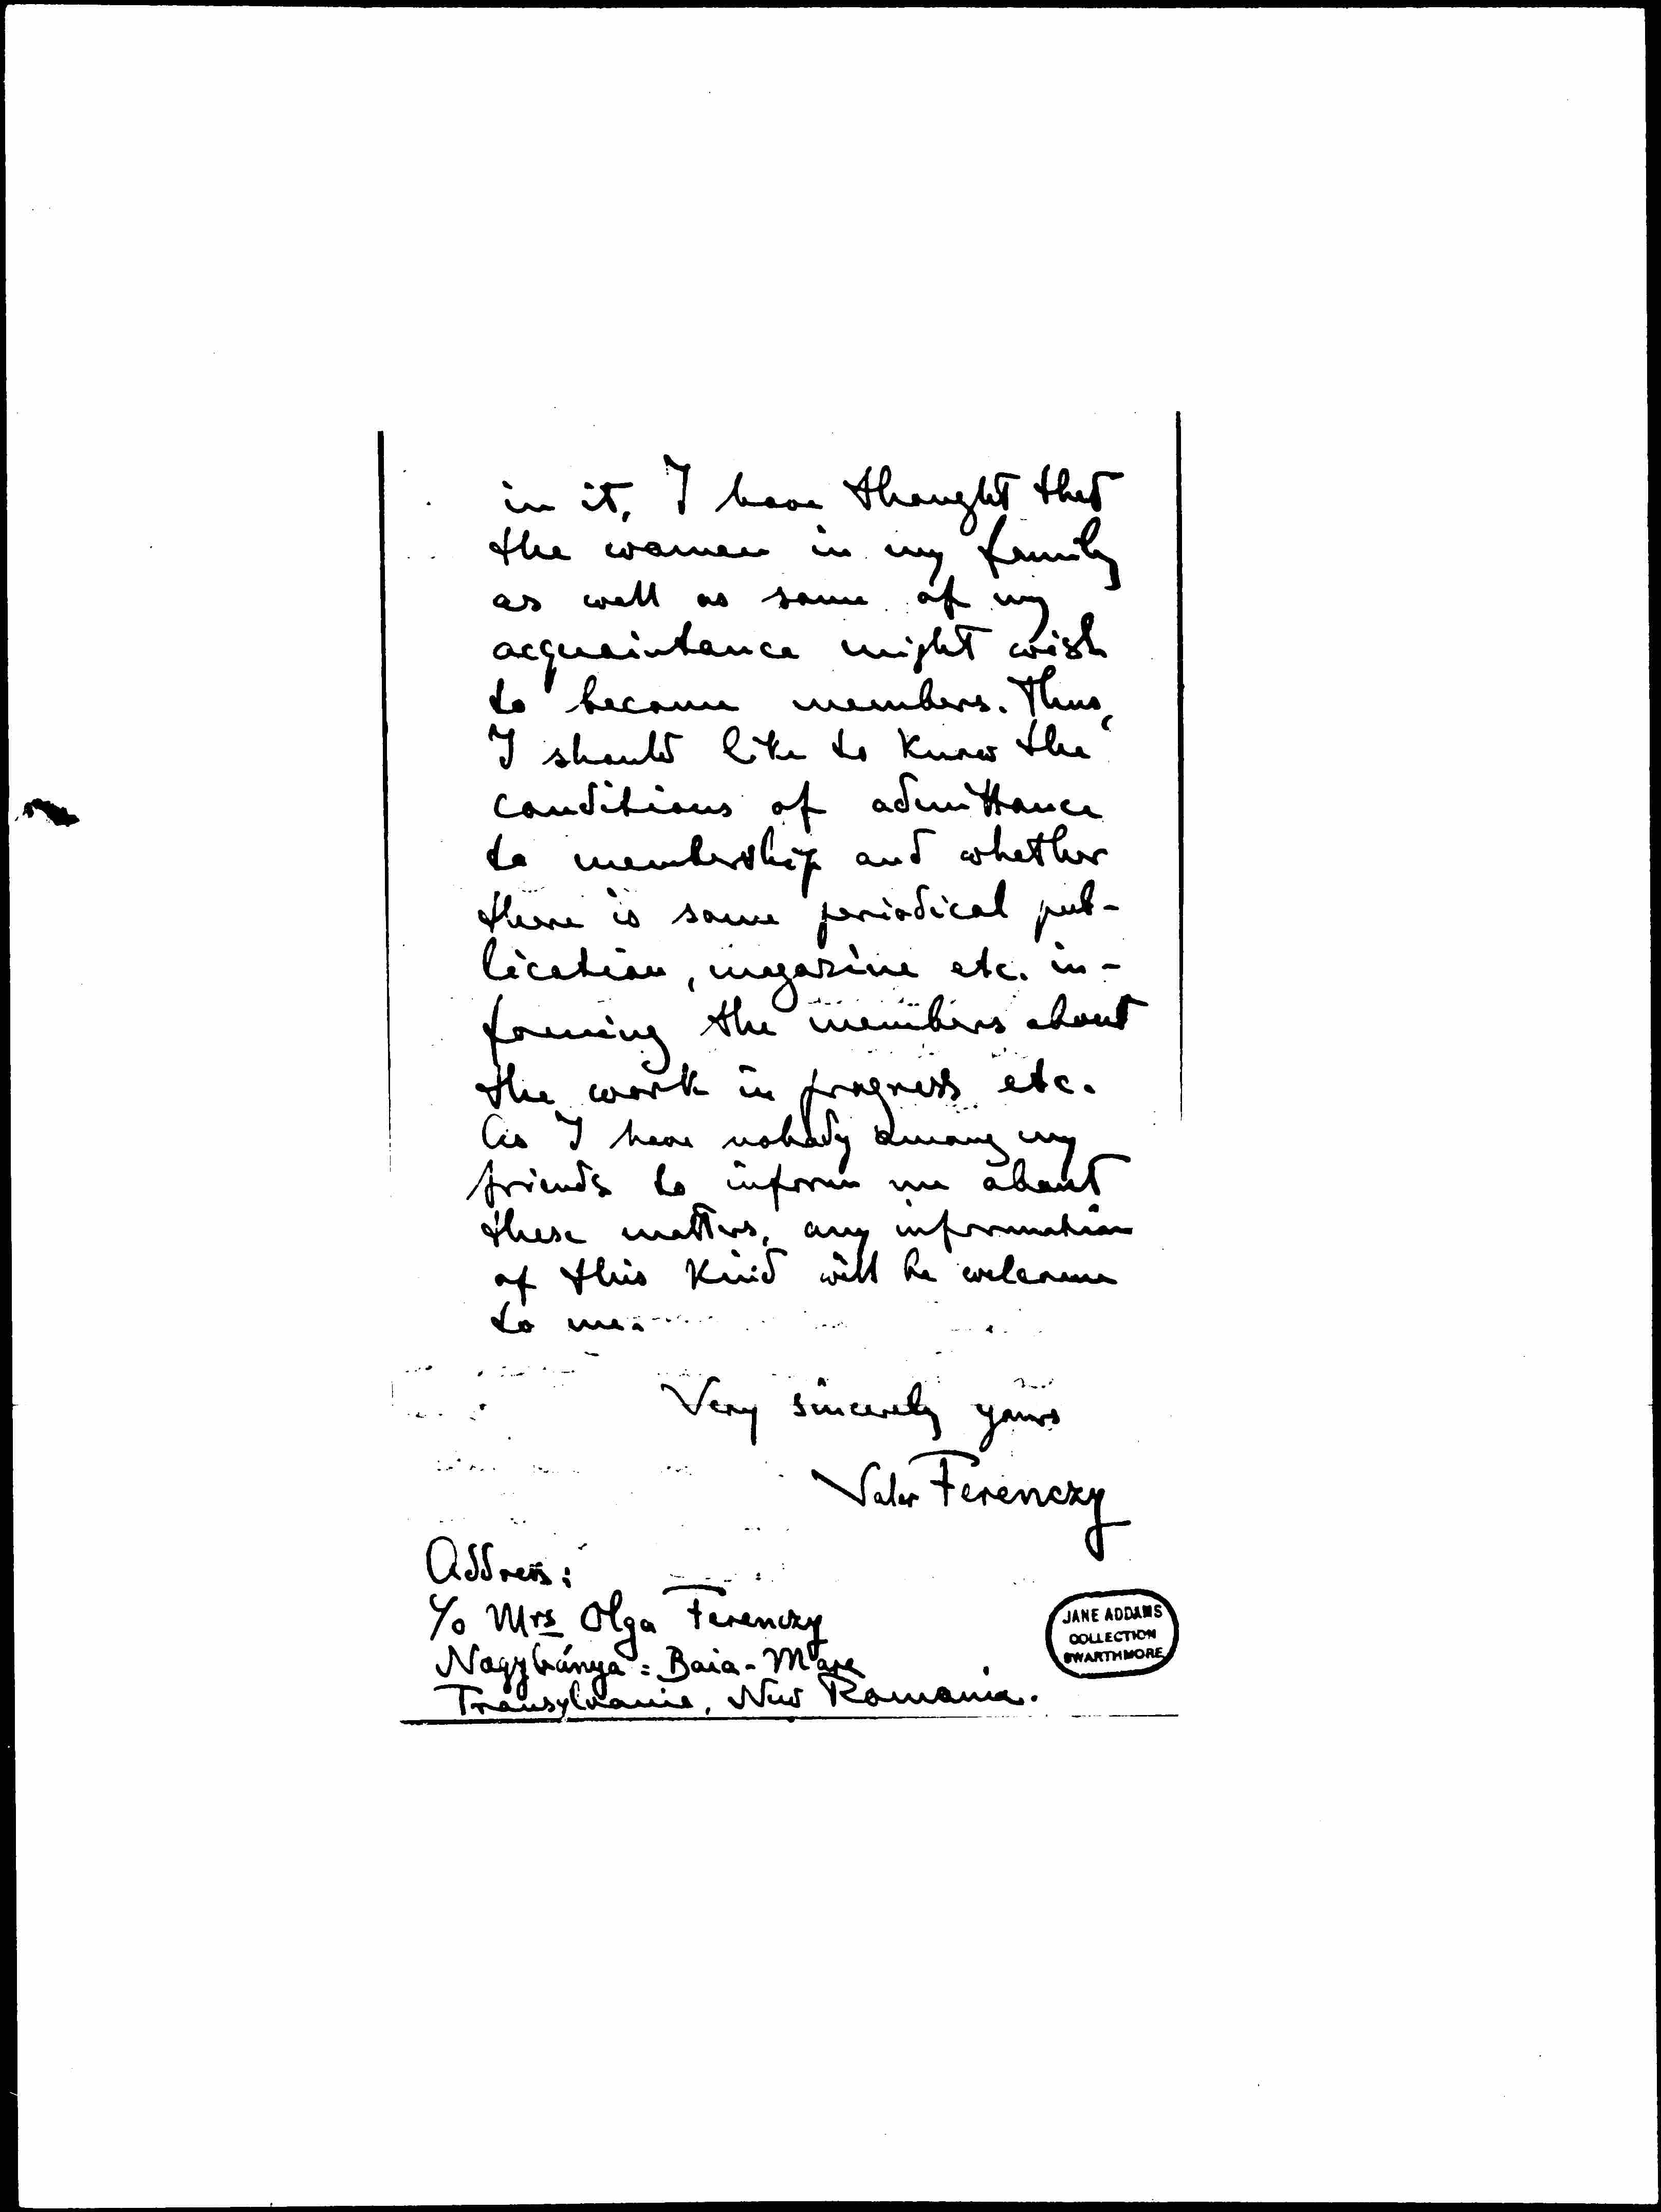 in it, I have thought that
the women in my family
as well as some of my
acquaintance might wish
to become members. Thus,
I should like to know the
conditions of admittance
to membership and whether
there is some periodical pub-
lication, magazine etc. in-
forming the members about
the work in progress etc.
As I have nobody among my
friends to inform me about
these matters, any information
of this kind will be welcome
to me.
Very sincerely yours
Valer Ferenczy
Address:
c/o Mrs Olga Ferenczy
Nagybánya = Baia-Mare
Transylvania, New Romania.
JANE ADDAMS
COLLECTION
SWARTHMORE